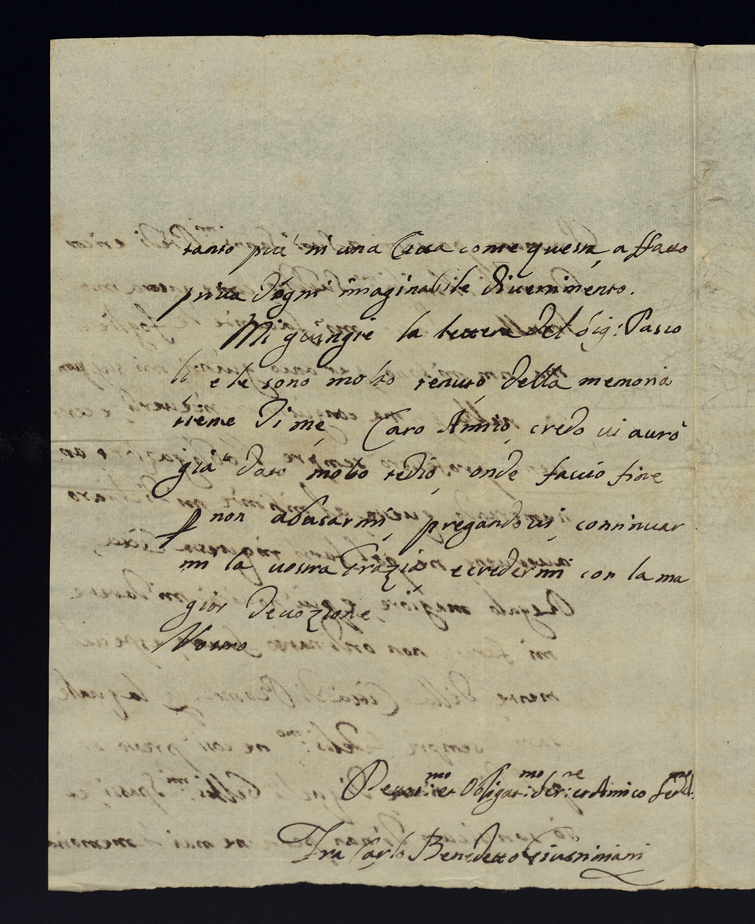 tanto più in una Città come questa, affatto
priva d'ogni imaginabile divertimento.
Mi giungre la lettera del Sig: Pasco
li e le sono molto tenuto della memoria
tiene di me, Caro Amico, credo vi aurò
già dato molto tedio, onde faccio fine
p non abusarmi, pregandovi continuar
mi la vostra Grazia, e credermi con la ma
gior devozione
Vostro
Devot:mo et Obligat:mo ser:re et Amico
Fra Carlo Benedetto Giustiniani